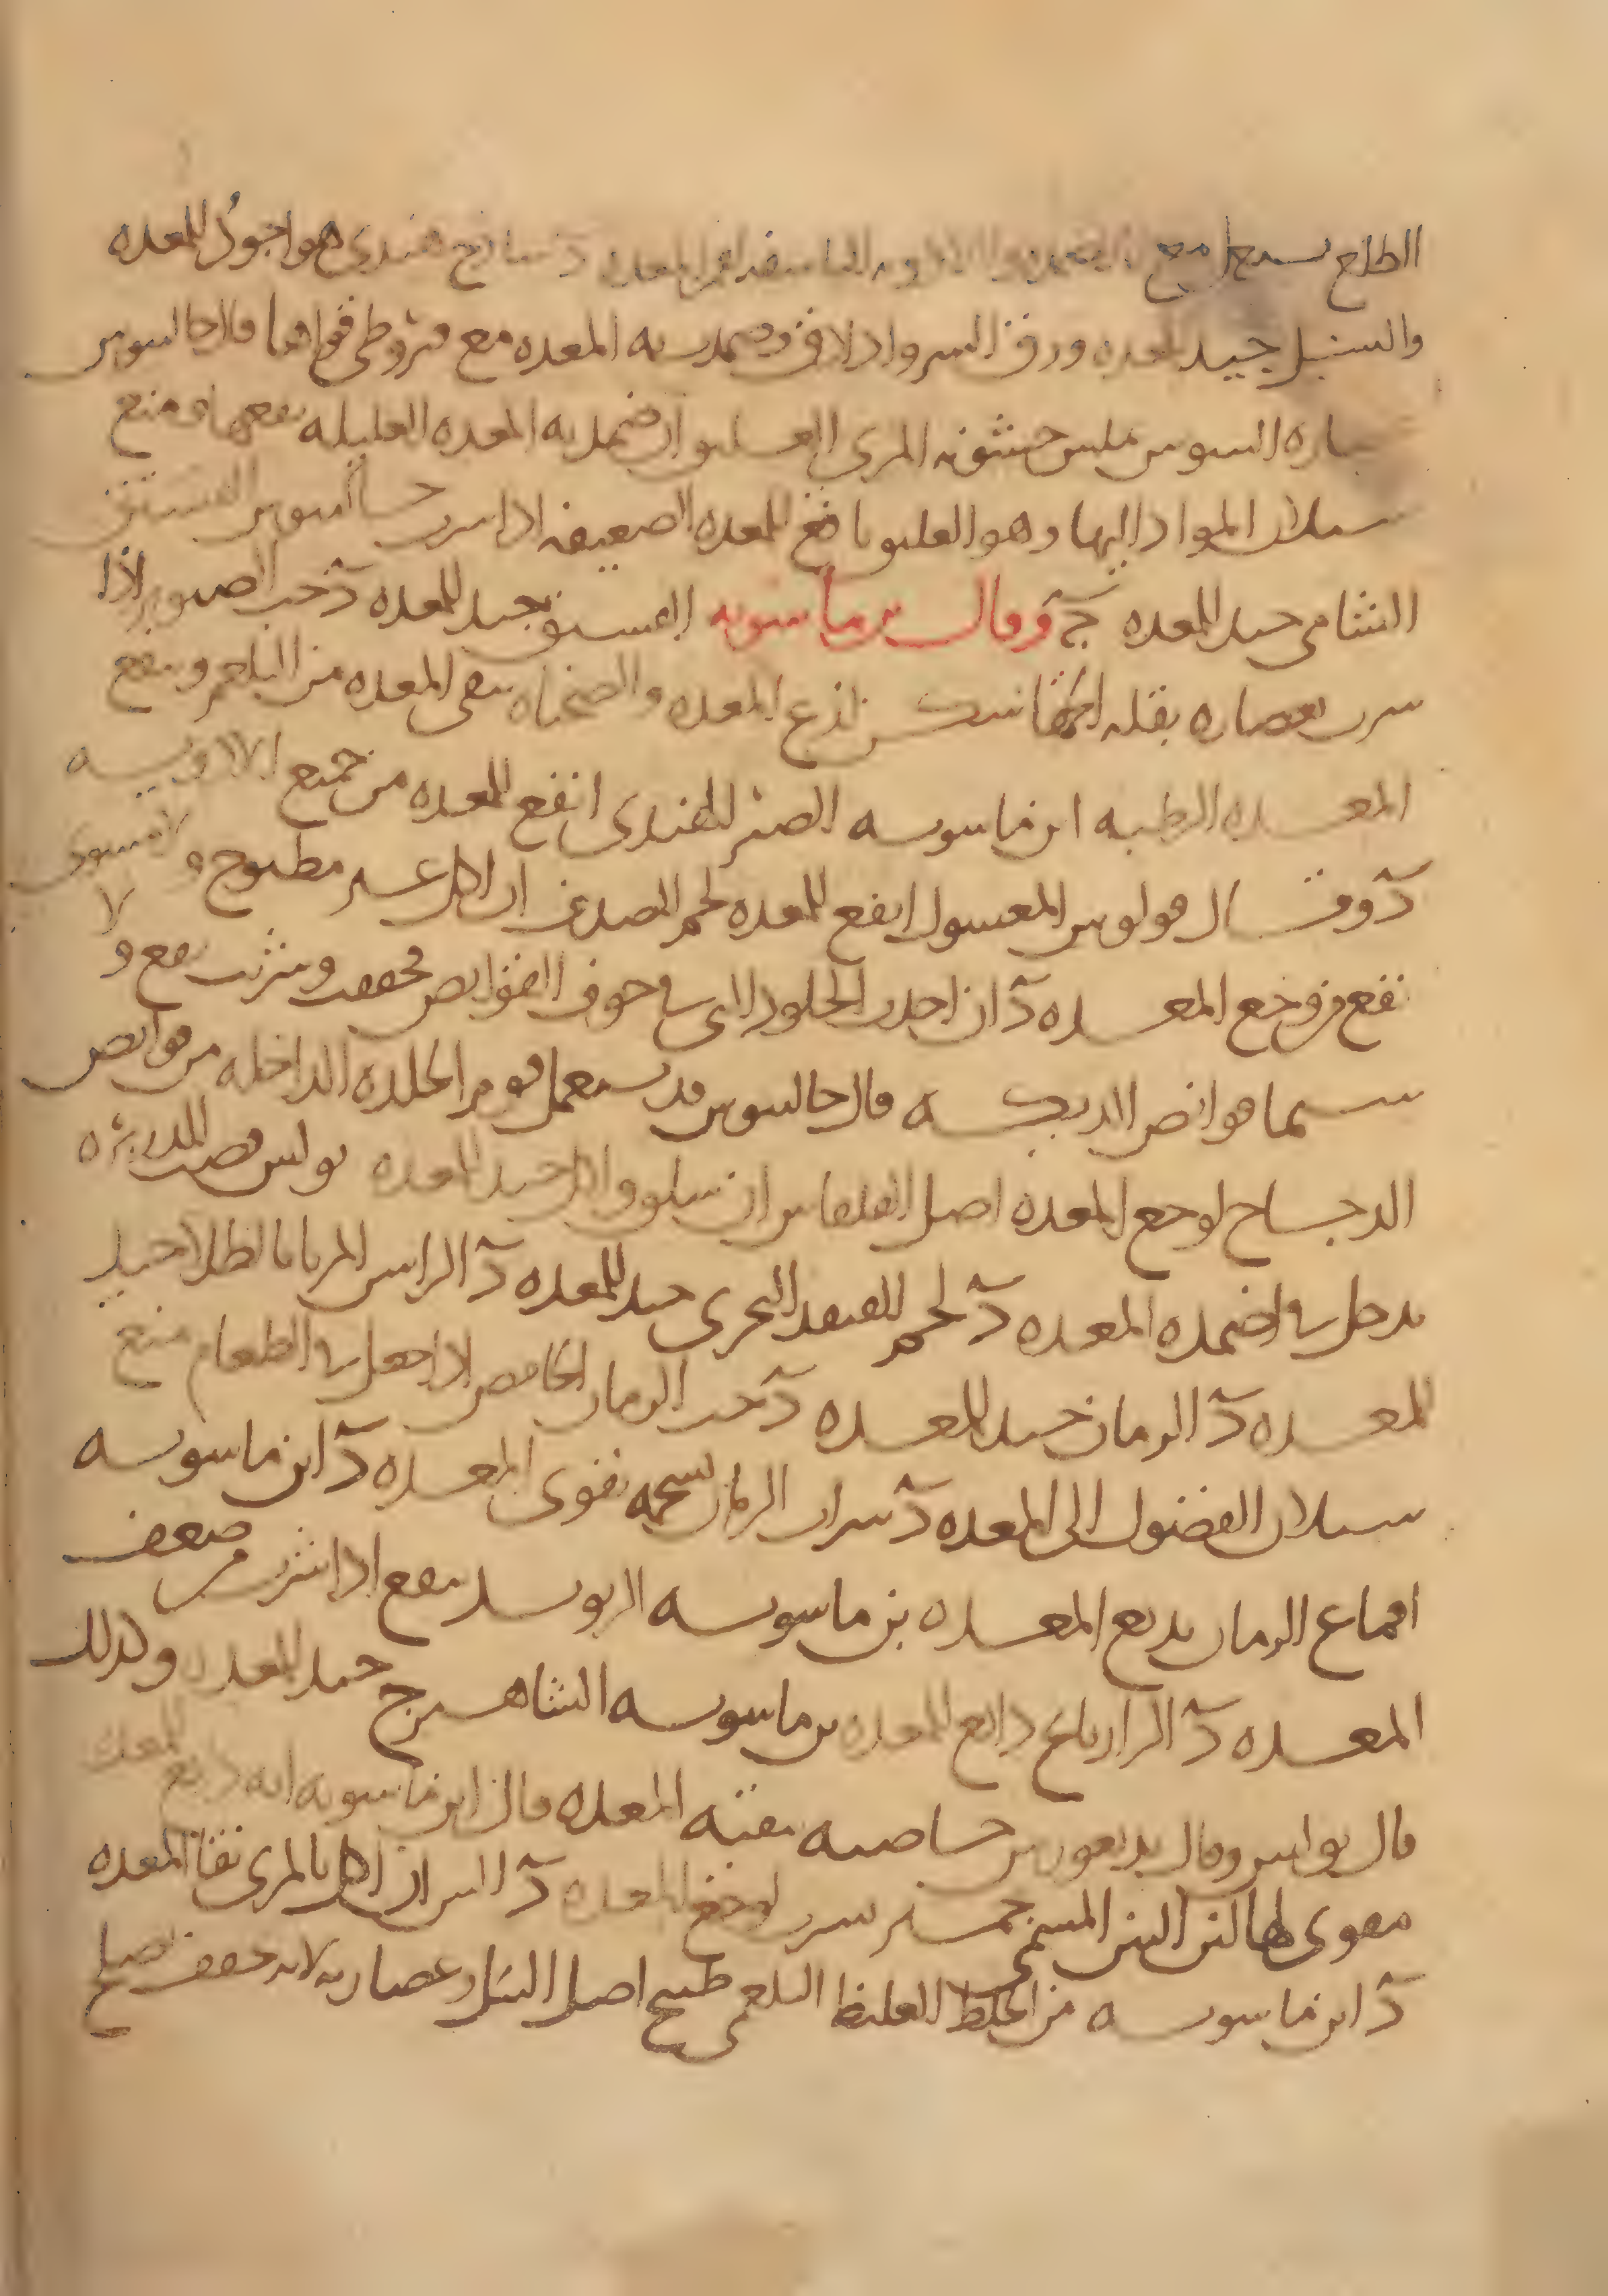 الطلع يستعمل مع الاضمده والادويه النافعه لفم المعده د ساذج هندي هو اجود للمعده
والسنبل جيد للمعده ورق السرو اذا دق وضمدت به المعده مع قيروطي قواها قال جالينوس
عصاره السوس تملس خشونه المري العليق ان ضمد به المعده العليله نفعها اي منع
سيلان المواد اليها وهو العليق نافع للمعده الضعيفه اذا شرب جالينوس الفستق
الشامي جيد للمعده ج وقال بن ماسويه الفستق جيد للمعده د حب الصنوبر اذا
شرب بعصاره بقله الحمقا سكن لذع المعده والصحناه ينقي المعده من البلغم وينفع
المعده الرطبه ابن ماسويه الصبر الهندي انفع للمعده من جميع الادويه
د وقال فولوس المغسول انفع للمعده لحم الصدف ان اكل غير مطبوخ ولا مشوي
نفع من وجع المعده د ان اخذت الجلود التي في جوف القوانص فجففت وشربت نفع ولا
سيما قوانص الديكه قال جالينوس قد يستعمل قوم الجلده الداخله من قوانص
الدجاج لوجع المعده اصل القلقاس ان سلق واكل جيد للمعده بولس قصب الذريره
يدخل في اضمده المعده د لحم القنفد البحري جيد للمعده د الراسن المربا بالطلا جيد
للمعده د الرمان جيد للمعده د حب الرمان الحامض اذا جعل في الطعام منع
سيلان الفضول الى المعده د شراب الرمان بشحمه يقوي المعده د ابن ماسويه
اقماع الرمان يدبغ المعده بن ماسويه الريوند ينفع اذا شرب من ضعف
المعده د الرازيانج دابغ للمعده بن ماسويه الشاهترج جيد للمعده وكذلك
قال بولس وقال بديغورس خاصيته تنقيه المعده قال ابن ماسويه انه دابغ للمعده
مقوي لها التين المسمى جميز شرب لوجع المعده د التين ان اكل بالمري نقا المعده
د ابن ماسويه من الخلط الغليظ البلغمي طبيخ اصل الثيل وعصارته لانه يجفف يصلح